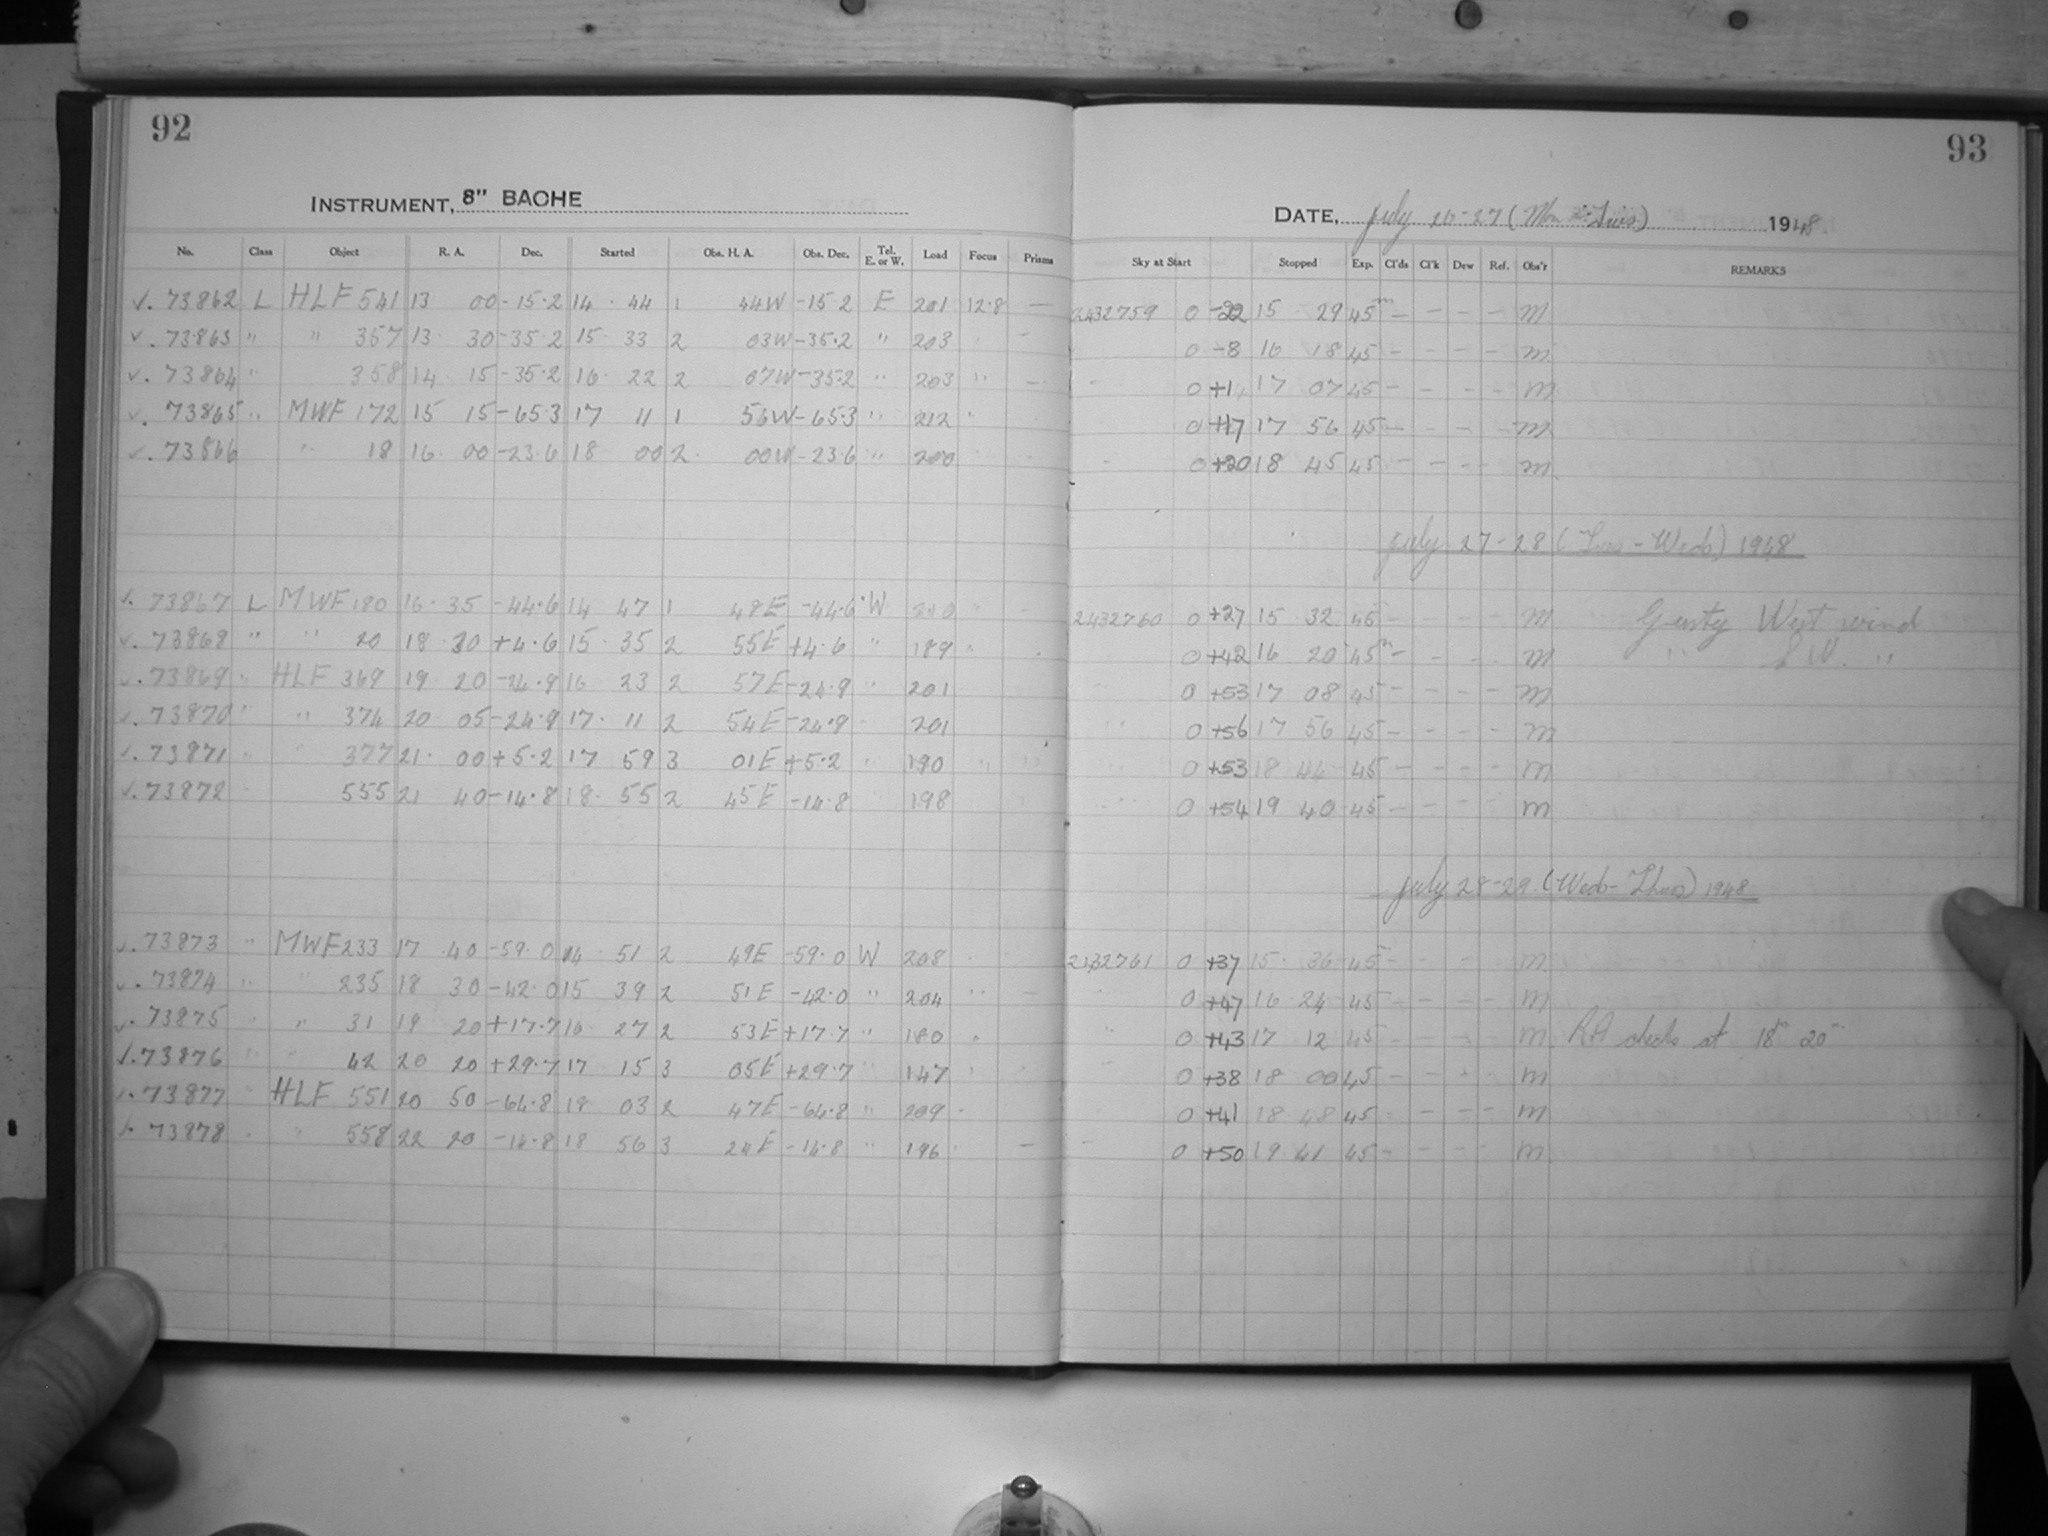 92
93
INSTRUMENT, 8" BACHE
DATE, July 26-27 (Mon & Tues) 1948
No. Class Object R. A. Dec. Started Obs. H. A. Obs. Dec. Tel. E. or W. Load Focus Prisms Sky at Start Stopped Exp. Cl'ds Cl'k Dew Ref. Obs'r REMARKS
√. 73862 L HLF 541 13 00 -15.2 14 44 1 44W -15.2 E 201 12.8 — 2432759 0 -22 15 29 45m — — — — M
√. 73863 " " 357 13 30 -35.2 15 33 2 03W -35.2 " 203 " — 0 -8 16 18 45 — — — — M
√. 73864 " 358 14 15 -35.2 16 22 2 07W -35.2 " 203 " — 0 +1 17 07 45 — — — — M
√. 73865 " MWF 172 15 15 -65.3 17 11 1 56W -65.3 " 212 " 0 +17 17 56 45 — — — — M
√. 73866 " 18 16 00 -23.6 18 00 2 00W -23.6 " 200 0 +20 18 45 45 — — — — M
July 27-28 (Tues - Weds) 1948
√. 73867 L MWF 180 16 35 -44.6 14 47 1 48E -44.6 W 2432760 0 +27 15 32 45 — — — — M Gusty West wind
√. 73868 " " 20 18 30 +4.6 15 35 2 55E +4.6 " 189 " 0 +42 16 20 45m — — — — M " S W. "
√. 73869 " HLF 369 19 20 -24.9 16 23 2 57E -24.9 " 201 0 +53 17 08 45 — — — — M
√. 73870 " " 374 20 05 -24.9 17 11 2 54E -24.9 201 0 +56 17 56 45 — — — — M
√. 73871 377 21 00 +5.2 17 59 3 01E +5.2 " 190 0 +53 18 44 45 — — — — M
√. 73872 555 21 40 -14.8 18 55 2 45E -14.8 198 0 +54 19 40 45 — — — — M
July 28-29 (Weds - Thurs) 1948
√. 73873 " MWF 233 17 40 -59.0 14 51 2 49E -59.0 W 208 2432761 0 +37 15 36 45 — — — — M
√. 73874 " 235 18 30 -42.0 15 39 2 51E -42.0 " 204 " — 0 +47 16 24 45 — — — — M
√. 73875 " " 31 19 20 +17.7 16 27 2 53E +17.7 " 180 " 0 +43 17 12 45 — — — — M RA clock at 18h 20m
√. 73876 " " 42 20 20 +29.7 17 15 3 05E +29.7 " 147 " 0 +38 18 00 45 — — — — M
√. 73877 " HLF 551 20 50 -64.8 18 03 2 47E -64.8 " 209 0 +41 18 48 45 — — — — M
√. 73878 " 558 22 20 -14.8 18 56 3 24E -14.8 " 196 — 0 +50 19 41 45 — — — — M